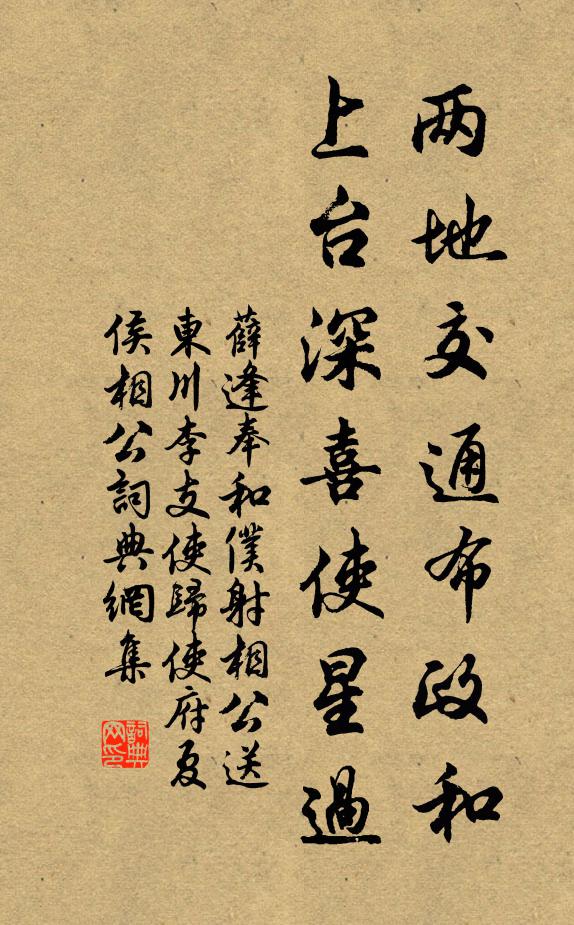 两地交通布政和
上台深喜使星過
薛逢奉和僕射相公送
東川李支使歸使府夏
侯相公詞典網集
詞典
网印